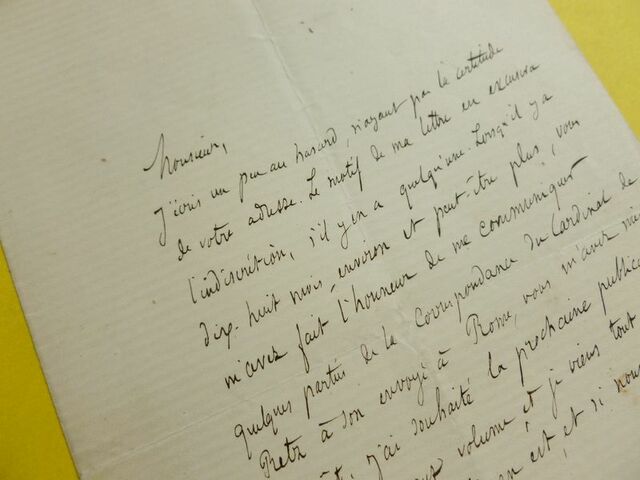 Monsieur,
J'écris un peu au hasard, n'ayant pas la certitude
de votre adresse. Le motif de ma lettre en excusera
l'indiscrétion, s'il y en a quelqu'une. Lorsqu'il y a
dix-huit mois environ et peut-être plus, vous
m'avez fait l'honneur de me communiquer
quelques parties de la correspondance du Cardinal de
Retz à son envoyé à Rome, vous m'avez
j'ai souhaité la prochaine public
volume et je viens tout
en est, et si nous